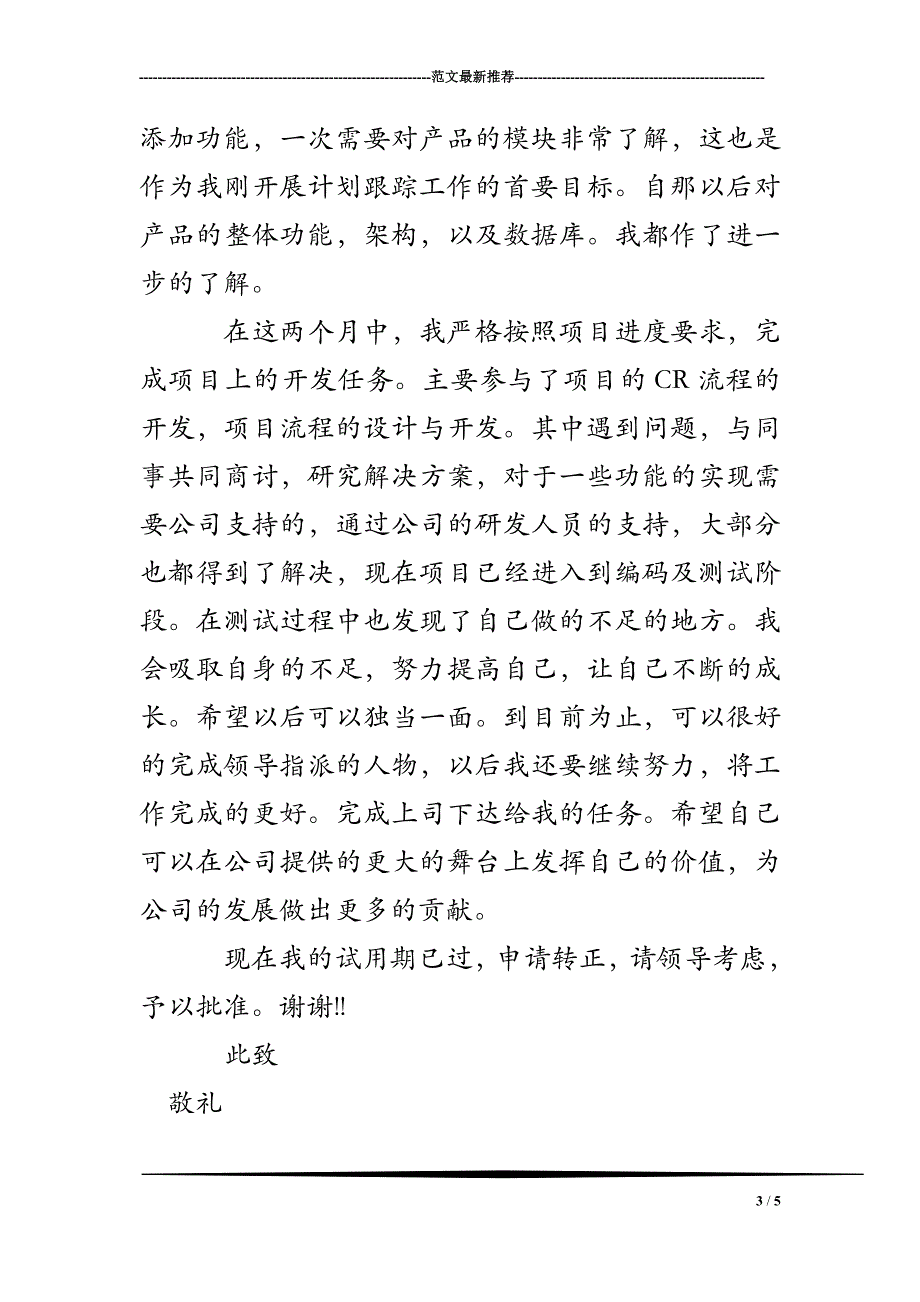 ---------------------------------------------------------------范文最新推荐------------------------------------------------------
添加功能，一次需要对产品的模块非常了解，这也是
作为我刚开展计划跟踪工作的首要目标。自那以后对
产品的整体功能，架构，以及数据库。我都作了进一
步的了解。
在这两个月中，我严格按照项目进度要求，完
成项目上的开发任务。主要参与了项目的 CR 流程的
开发，项目流程的设计与开发。其中遇到问题，与同
事共同商讨，研究解决方案，对于一些功能的实现需
要公司支持的，通过公司的研发人员的支持，大部分
也都得到了解决，现在项目已经进入到编码及测试阶
段。在测试过程中也发现了自己做的不足的地方。我
会吸取自身的不足，努力提高自己，让自己不断的成
长。希望以后可以独当一面。到目前为止，可以很好
的完成领导指派的人物，以后我还要继续努力，将工
作完成的更好。完成上司下达给我的任务。希望自己
可以在公司提供的更大的舞台上发挥自己的价值，为
公司的发展做出更多的贡献。
现在我的试用期已过，申请转正，请领导考虑，
予以批准。谢谢!!
此致
敬礼
3 / 5